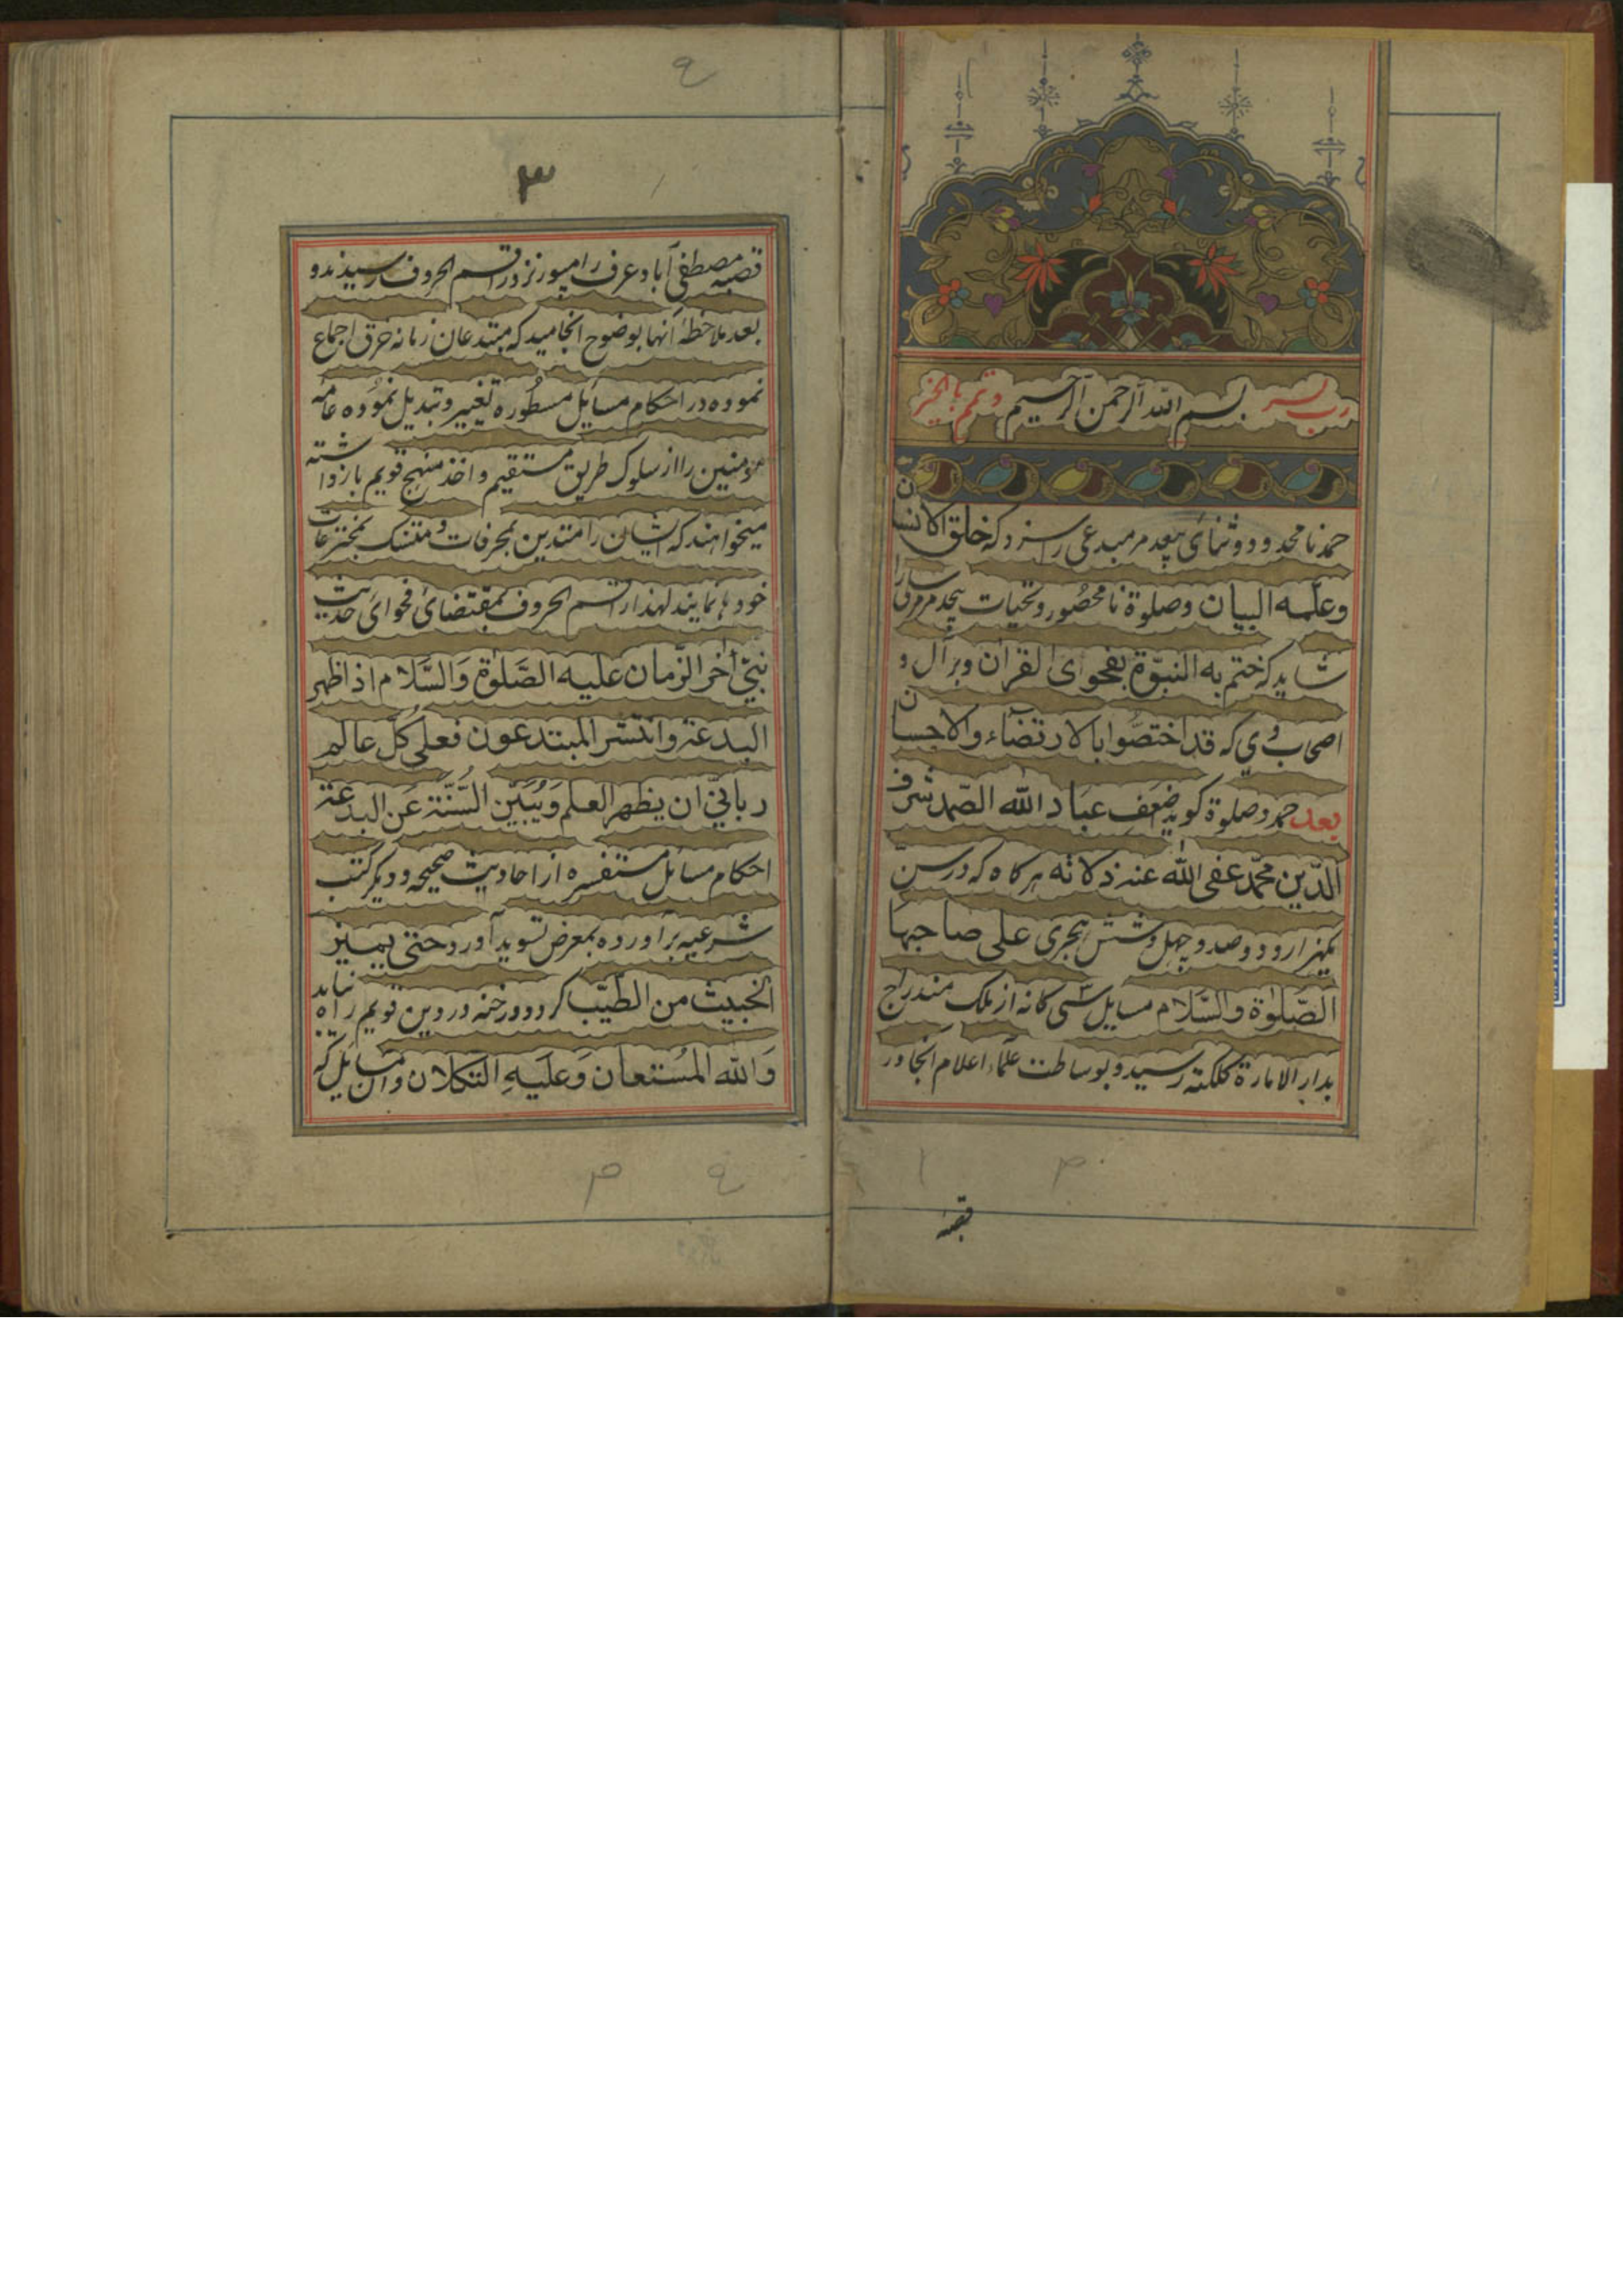 رب یسر بسم الله الرحمن الرحیم وتمم بالخیر
حمد نا محدود و ثنای بیعد مر مبدعی را سزد که خلق الانسان
وعلمه البیان وصلوة نا محصور و تحیات بیحد مر مر
شاید که ختم به النبوّة بفحوای القران وبر آل و
اصحاب وی که قد اختصّوا بالارتضاء والاحسان
بعد حمد و صلوة کوید اضعف عباد الله الصّمد شرف
الدّین محمّد عفی الله عنه ذلاته هرکاه که در سن
یکهزار و دو صد و چهل و شش هجری علی صاحبها
الصّلوٰة والسّلام مسایل سی کانه از ملک مندراج
بدار الامارة کلکته رسید و بوساطت علماء اعلام آنجا در
قصبه
۳
قصبه مصطفی آباد عرف رامپور نزد راقسم الحروف رسیدند و
بعد ملاحظهٔ آنها بوضوح انجامید که مبتدعان زمانه خرق اجماع
نموده در احکام مسایل مسطوره تغییر و تبدیل نموده عامه
مومنین را از سلوک طریق مستقیم و اخذ منهج قویم باز داشته
میخواهند که ایشان را متدین بمحرفات و متنسک بمخترعات
خودها نمایند لهذا راقسم الحروف بمقتضائ فحوای حدیث
نبیّ اٰخر الزّمان علیه الصّلوٰة وَالسَّلام اذا ظهر
البدعة وانتشر المبتدعون فعلی کُلّ عالم
ربانیّ ان یظهر العلم وَیُبَیّن السُّنّة عَن البدعة
احکام مسائل مستفسره از احادیث صحیحه و دیکر کتب
شرعیه برآورده بمعرض تسوید آورد حتی یمیز
الخبیث من الطیّب کردد و رخنه در دین قویم راه نیابد
وَالله المُستعان وَعلیهِ التکلان و آن مسائل که